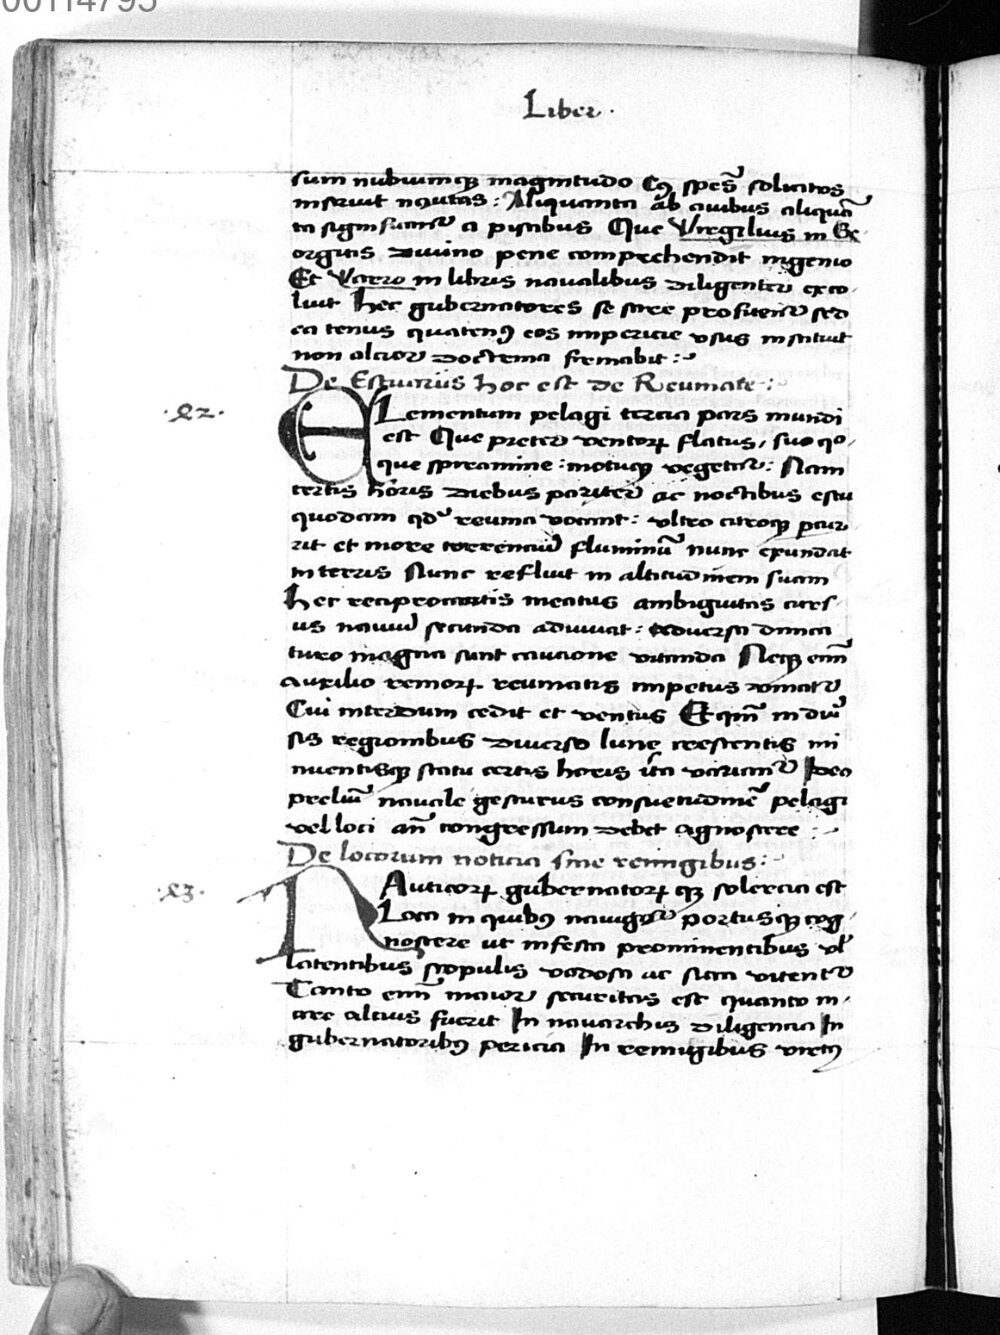 00114795
Liber.
sum nubiumqꝫ magnitudo Cꝰ spe᷒ solicitos
instruit nautas: Aliquanta ab auibus aliquā
ta significantᷣ a piscibus Que Virgilius in Ge
orgicis diuino pene comprehendit ingenio
Et Varro in libris naualibus diligenter exco
luit Hec gubernatores se scire profitentᷣ sed
ea tenus quatenꝰ eos impericie vsus instituit
non alcior doctrina firmabit:~
De Estuariis hoc est de Reumate:
.22.
ELementum pelagi tercia pars mundi
est Que preter ventorꝝ flatus, suo qo-
que spiramine: motuqꝫ vegetatᷣ: Nam
certis horis diebus pariter ac noctibus estu
quodam qđ reuma vocant: vltro citroqꝫ pcur
rit et more torrenciū fluminū nunc exundat
in terris Nunc refluit in altitudinem suam
Hec reciprocantis meatus ambiguitas curs-
us nauiū secunda adiuuat: aduersa dimica
turo magna sunt caucione vitanda Neqꝫ enī
Auxilio remorꝝ reumatis impetus vincitᷣ
Cui interdum cedit et ventus Et qm̄ in diu᷒
sis regionibus diuerso lune crescentis mi
nuentisqꝫ statu certis horis ita variantᷣ Ideo
preliū nauale gesturus consuetudinē pelagi
vel loci an̄ congressum debet agnoscere:~
De locorum noticia siue remigibus:~
.23.
NAuticorꝝ gubernatorꝝ qꝫ solercia est
Loca in quibꝰ nauigatᷣ portusqꝫ cog-
noscere ut infesta prominentibus vl̄
latentibus scopulis vadosa ac sicca vitentᷣ
Tanto enī maior securitas est quanto m-
are alcius fuerit In nauarchis diligencia In
gubernatoribꝰ pericia In remigibus virtꝰ